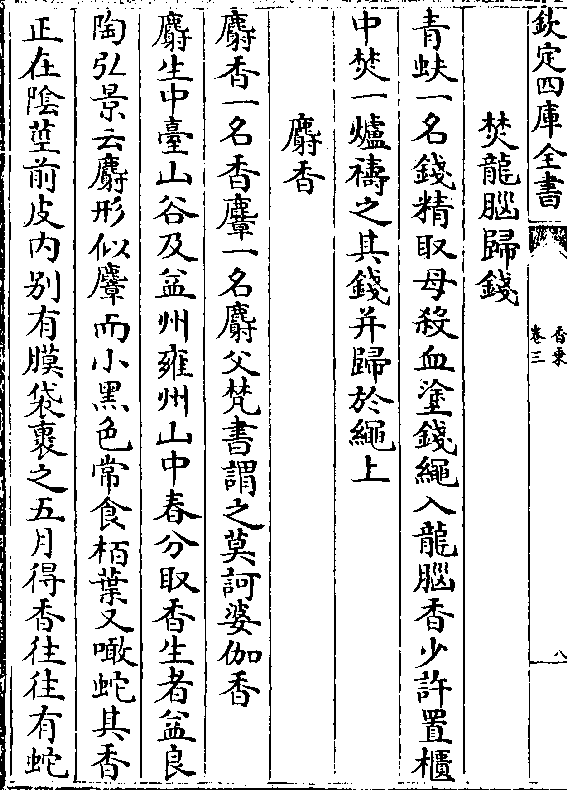 欽定四庫全書
香乘
卷三
八
焚龍腦歸錢
青蚨一名錢精取母殺血塗錢繩入龍腦香少許置櫃
中焚一爐禱之其錢并歸於繩上
麝香
麝香一名香麞一名麝父梵書謂之莫訶婆伽香
麝生中臺山谷及益州雍州山中春分取香生者益良
陶弘景云麝形似麞而小黑色常食栢葉又噉蛇其香
正在陰莖前皮内别有膜袋裹之五月得香往往有蛇